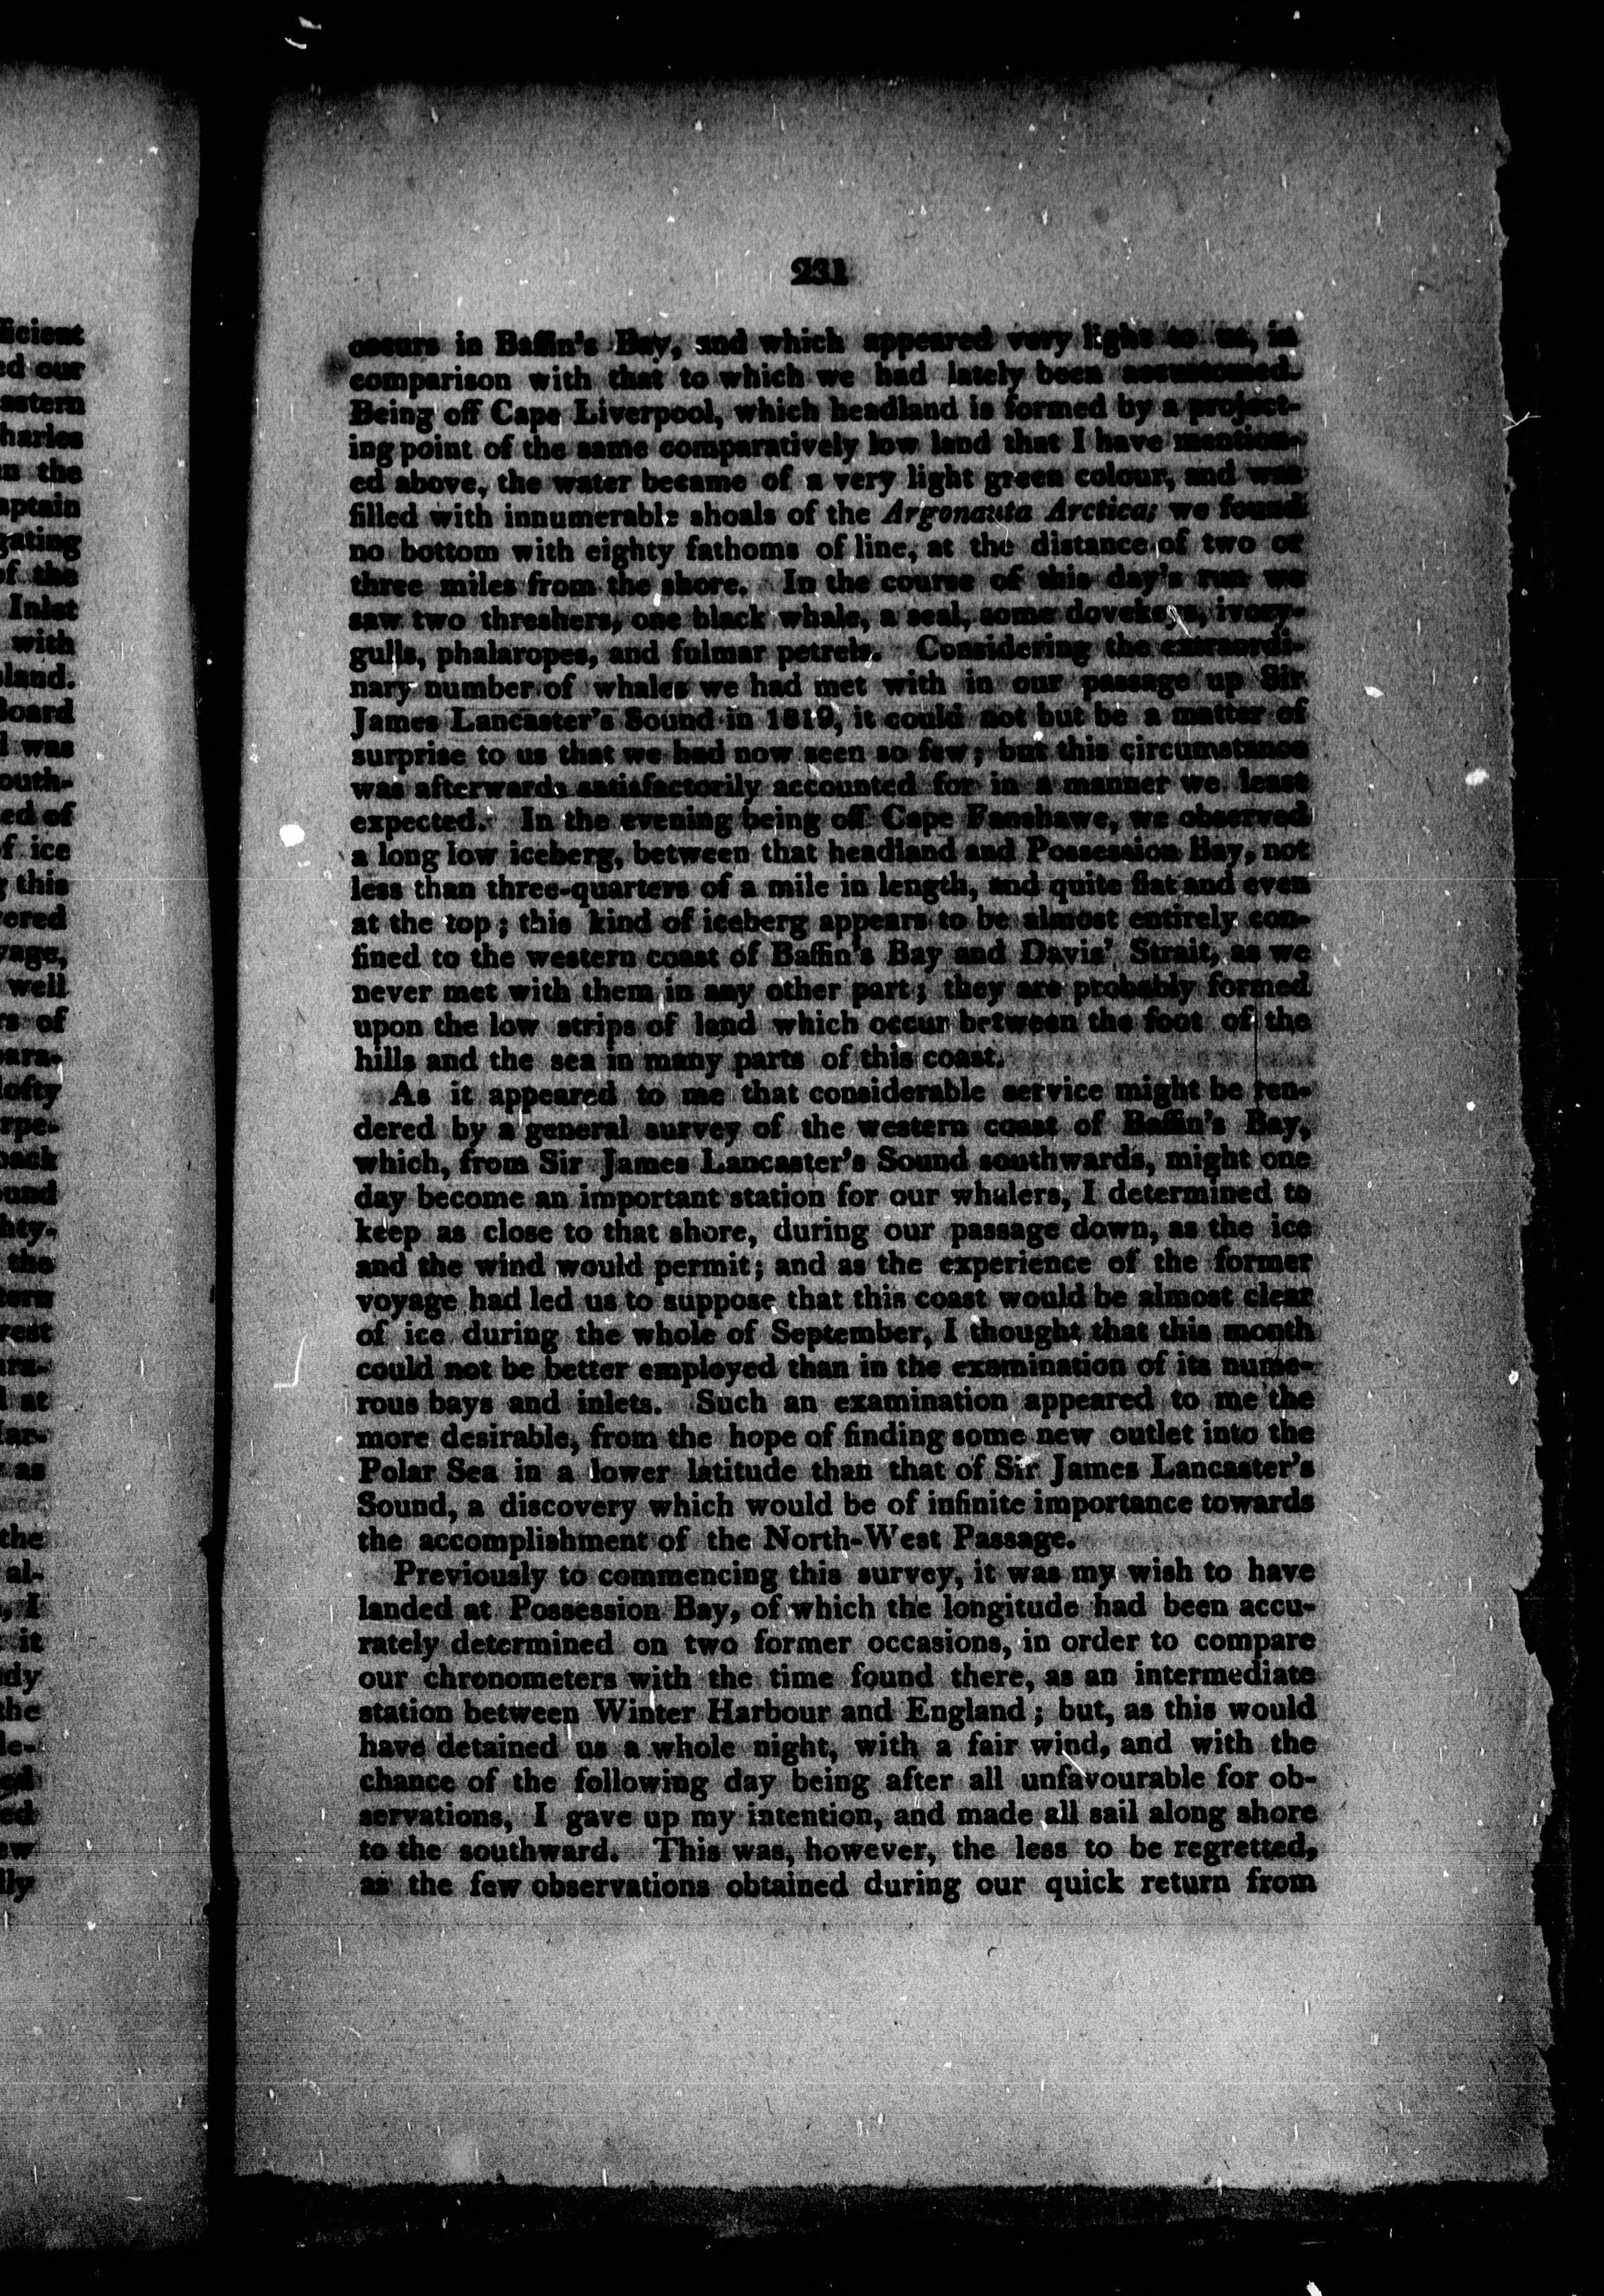 231
occurs in Baffin's Bay, and which appeared very light to us, in
comparison with that to which we had lately been accustomed.
Being off Cape Liverpool, which headland is formed by a project-
ing point of the same comparatively low land that I have mention-
ed above, the water became of a very light green colour, and was
filled with innumerable shoals of the Argonauta Arctica; we found
no bottom with eighty fathoms of line, at the distance of two or
three miles from the shore. In the course of this day's run we
saw two threshers, one black whale, a seal, some dovekeys, ivory-
gulls, phalaropes, and fulmar petrels. Considering the extraordi-
nary number of whales we had met with in our passage up Sir
James Lancaster's Sound in 1819, it could not but be a matter of
surprise to us that we had now seen so few; but this circumstance
was afterwards satisfactorily accounted for in a manner we least
expected. In the evening being off Cape Fanshawe, we observed
a long low iceberg, between that headland and Possession Bay, not
less than three-quarters of a mile in length, and quite flat and even
at the top; this kind of iceberg appears to be almost entirely con-
fined to the western coast of Baffin's Bay and Davis' Strait, as we
never met with them in any other part; they are probably formed
upon the low strips of land which occur between the foot of the
hills and the sea in many parts of this coast.
As it appeared to me that considerable service might be ren-
dered by a general survey of the western coast of Baffin's Bay,
which, from Sir James Lancaster's Sound southwards, might one
day become an important station for our whalers, I determined to
keep as close to that shore, during our passage down, as the ice
and the wind would permit; and as the experience of the former
voyage had led us to suppose that this coast would be almost clear
of ice during the whole of September, I thought that this month
could not be better employed than in the examination of its nume-
rous bays and inlets. Such an examination appeared to me the
more desirable, from the hope of finding some new outlet into the
Polar Sea in a lower latitude than that of Sir James Lancaster's
Sound, a discovery which would be of infinite importance towards
the accomplishment of the North-West Passage.
Previously to commencing this survey, it was my wish to have
landed at Possession Bay, of which the longitude had been accu-
rately determined on two former occasions, in order to compare
our chronometers with the time found there, as an intermediate
station between Winter Harbour and England; but, as this would
have detained us a whole night, with a fair wind, and with the
chance of the following day being after all unfavourable for ob-
servations, I gave up my intention, and made all sail along shore
to the southward. This was, however, the less to be regretted,
as the few observations obtained during our quick return from